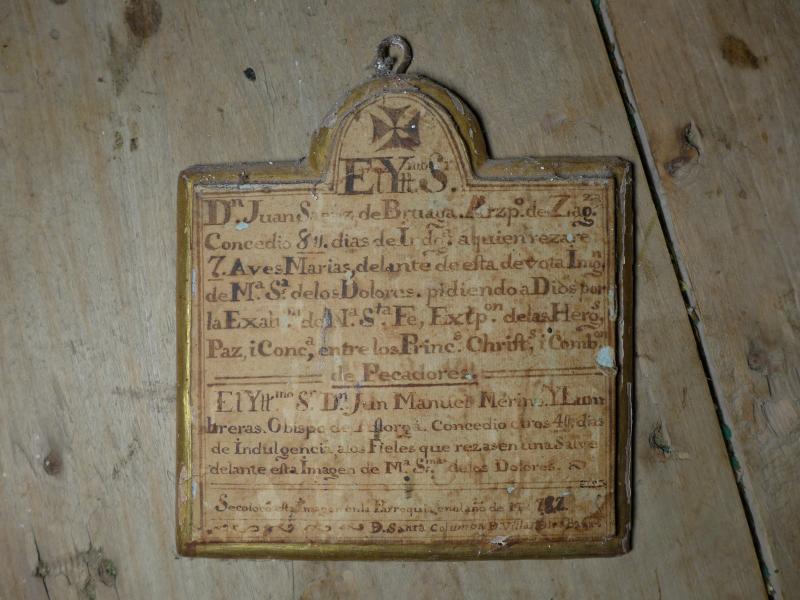 El Ytt.mo S.r
D.n Juan Saenz de Bruaga. Arzp.o de Zag.za
Concedio 80. dias de Yrdg.a a quien rezare
7. Aves Marias, delante de esta devota Im.n
de M.a S.a delos Dolores. pidiendo a Dios por
la Exalt.n de N.a S.ta Fe, Extp.on delas Hero.s
Paz, i Conc.a, entre los Princ.s Christ.s, i Comb.on
de Pecadores.
El Ytt.mo S.r D.n Jun Manuel Merino. Y Lum
breras. Obispo de Astorga. Concedio otros 40. dias
de Indulgencia alos Fieles que rezasen una Salve
delante esta Imagen de M.a S.ma delos Dolores.
Secoloco esta Imagen enla Parroquia enel año de 1787.
D. Santa Columba D. Villar